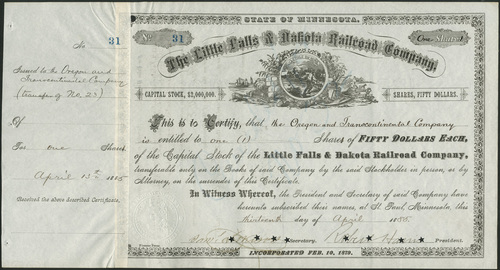 STATE OF MINNESOTA.
No 31
No. 31
One Shares
The Little Falls & Dakota Railroad Company.
CAPITAL STOCK, $2,000,000.
SHARES, FIFTY DOLLARS.
Issued to the Oregon and
Transcontinental Company
(transfer of No. 23)
Of
For one Shares
April 13th 1885
Received the above described Certificate,
This is to Certify, that the Oregon and Transcontinental Company
is entitled to one (1) Shares of FIFTY DOLLARS EACH,
of the Capital Stock of the Little Falls & Dakota Railroad Company,
transferable only on the Books of said Company by the said Stockholder in person, or by
Attorney, on the surrender of this Certificate.
In Witness Whereof, the President and Secretary of said Company have
hereunto subscribed their names, at St. Paul, Minnesota, this
thirteenth day of April 1885.
Secretary.
President.
INCORPORATED FEB. 10, 1879.